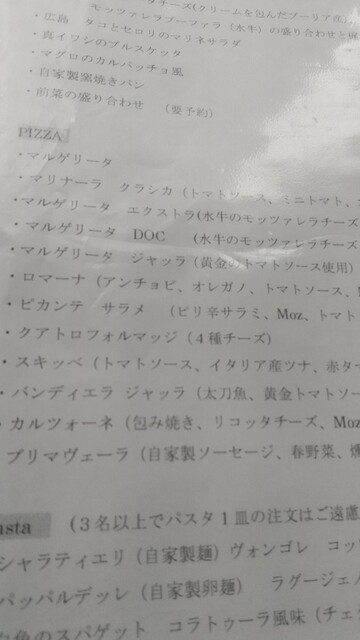 ナーズ(クリームを包んだプーリア産)
モッツァレラブーファラ（水牛）の盛り合わせと
・広島　タコとセロリのマリネサラダ
・真イワシのブルスケッタ
・マグロのカルパッチョ風
・自家製窯焼きパン
・前菜の盛り合わせ　（要予約）
PIZZA
・マルゲリータ
・マリナーラ　クラシカ（トマトソース、ミニトマト、
・マルゲリータ　エクストラ(水牛のモッツァレラチーズ
・マルゲリータ　DOC　（水牛のモッツァレラチーズ
・マルゲリータ　ジャッラ（黄金のトマトソース使用）
・ロマーナ（アンチョビ、オレガノ、トマトソース、
・ピカンテ　サラメ　（ピリ辛サラミ、Moz、トマト
・クアトロフォルマッジ（４種チーズ）
・スキッベ（トマトソース、イタリア産ツナ、赤タ
・バンディエラ　ジャッラ（太刀魚、黄金トマトソー
・カルツォーネ（包み焼き、リコッタチーズ、Moz
・プリマヴェーラ（自家製ソーセージ、春野菜、燻
asta　（３名以上でパスタ１皿の注文はご遠慮
シャラティエリ（自家製麺）ヴォンゴレ　コッ
パッパルデッレ（自家製卵麺）　ラグージェノ
色のスパゲット　コラトゥーラ風味（チェ